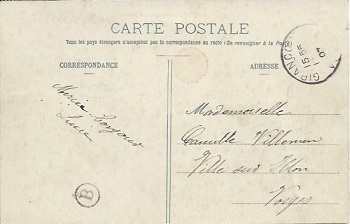 CARTE POSTALE
Tous les pays étrangers n'acceptent pas la correspondance au recto (Se renseigner à la Poste)
CORRESPONDANCE
ADRESSE
GIRANCO
15 15
07
Bonjour
Mademoiselle
Camille Villemin
Ville sur Illon
Vosges
B